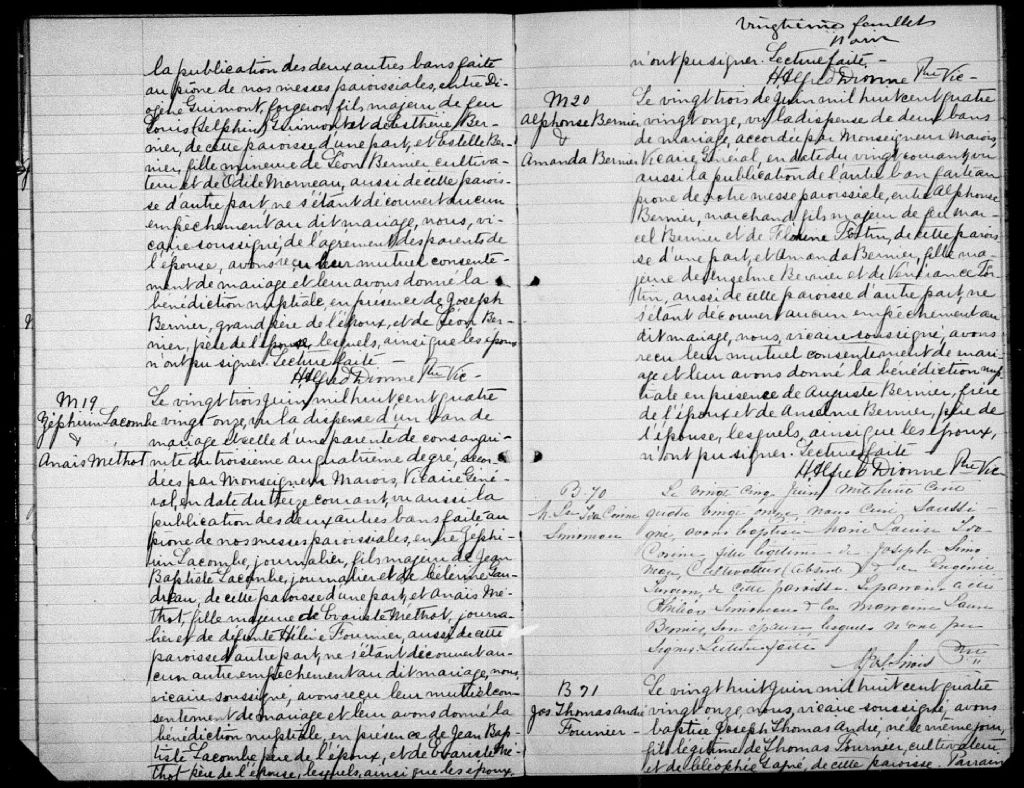 la publication des deux autres bans faite
au prône de nos messes paroissiales, entre Dio-
gène Guimont, forgeron, fils majeur de feu
Louis Delphin Guimont et de Esther Ber-
nier, de cette paroisse d'une part, et Estelle Ber-
nier, fille mineure de Léon Bernier cultiva-
teur et de Odile Morneau, aussi de cette parois-
se d'autre part, ne s'étant découvert aucun
empêchement au dit mariage, nous, vi-
caire soussigné, de l'agrément des parents de
l'épouse, avons reçu leur mutuel consente-
ment de mariage et leur avons donné la
bénédiction nuptiale, en présence de Joseph
Bernier, grand père de l'époux, et de Léon Ber-
nier, père de l'épouse, lesquels, ainsi que les époux
n'ont pu signer. Lecture faite -
H Alfred Dionne Ptre Vic -
M 19
Zéphirin Lacombe
&
Anais Méthot
Le vingt trois juin mil huit cent quatre
vingt onze, vu la dispense d'un ban de
mariage et celle d'une parenté de consangui-
nité du troisième au quatrième degré, accor-
dées par Monseigneur Marois, Vicaire Géné-
ral, en date du seize courant, vu aussi la
publication des deux autres bans faite au
prône de nos messes paroissiales, entre Zéphi-
rin Lacombe, journalier, fils majeur de Jean
Baptiste Lacombe, journalier et de Célérine Gau-
dreau, de cette paroisse d'une part, et Anais Mé-
thot, fille majeure de Evariste Méthot, journa-
lier et de défunte Hélène Fournier, aussi de cette
paroisse d'autre part, ne s'étant découvert au-
cun autre empêchement au dit mariage, nous,
vicaire soussigné, avons reçu leur mutuel con-
sentement de mariage et leur avons donné la
bénédiction nuptiale, en présence de Jean Bap-
tiste Lacombe père de l'époux, et de Evariste Mé-
thot père de l'épouse, lesquels, ainsi que les époux,
vingtième feuillet
n'ont pu signer. Lecture faite, -
H Alfred Dionne Ptre Vic -
M 20
Alphonse Bernier
&
Amanda Bernier
Le vingt trois de juin mil huit cent quatre
vingt onze, vu la dispense de deux bans
de mariage, accordée par Monseigneur Marois,
Vicaire Général, en date du vingt courant, vu
aussi la publication de l'autre ban faite au
prône de notre messe paroissiale, entre Alphonse
Bernier, marchand, fils majeur de feu Mar-
cel Bernier et de Fortin, de cette parois-
se d'une part, et Amanda Bernier, fille ma-
jeure de Anselme Bernier et de Vénérance For-
tin, aussi de cette paroisse d'autre part, ne
s'étant découvert aucun empêchement au
dit mariage, nous, vicaire soussigné, avons
reçu leur mutuel consentement de mari-
age et leur avons donné la bénédiction nup-
tiale en présence de Auguste Bernier, frère
de l'époux et de Anselme Bernier, père de
l'épouse, lesquels, ainsi que les époux,
n'ont pu signer. Lecture faite
H Alfred Dionne Ptre Vic
B 70
M. Ls Iva Corine
Simoneau
Le vingt cinq Juin mil huit cent
quatre vingt onze, nous Curé Soussi-
gné, avons baptisé Marie Louise Iva
Corine fille légitime de Joseph Simo
neau, Cultivateur (absent) & de Eugénie
de cette paroisse. Le parrain a été
Philias Simoneau & la marraine Laure
Bernier, son épouse, lesquels n'ont pu
Signer. Lecture faite
Ptre
B 71
Jos Thomas André
Fournier -
Le vingt huit juin mil huit cent quatre
vingt onze, nous, vicaire soussigné, avons
baptisé Joseph Thomas André, né le même jour,
fils légitime de Thomas Fournier, cultivateur
et de Cléophée Gagné, de cette paroisse. Parrain